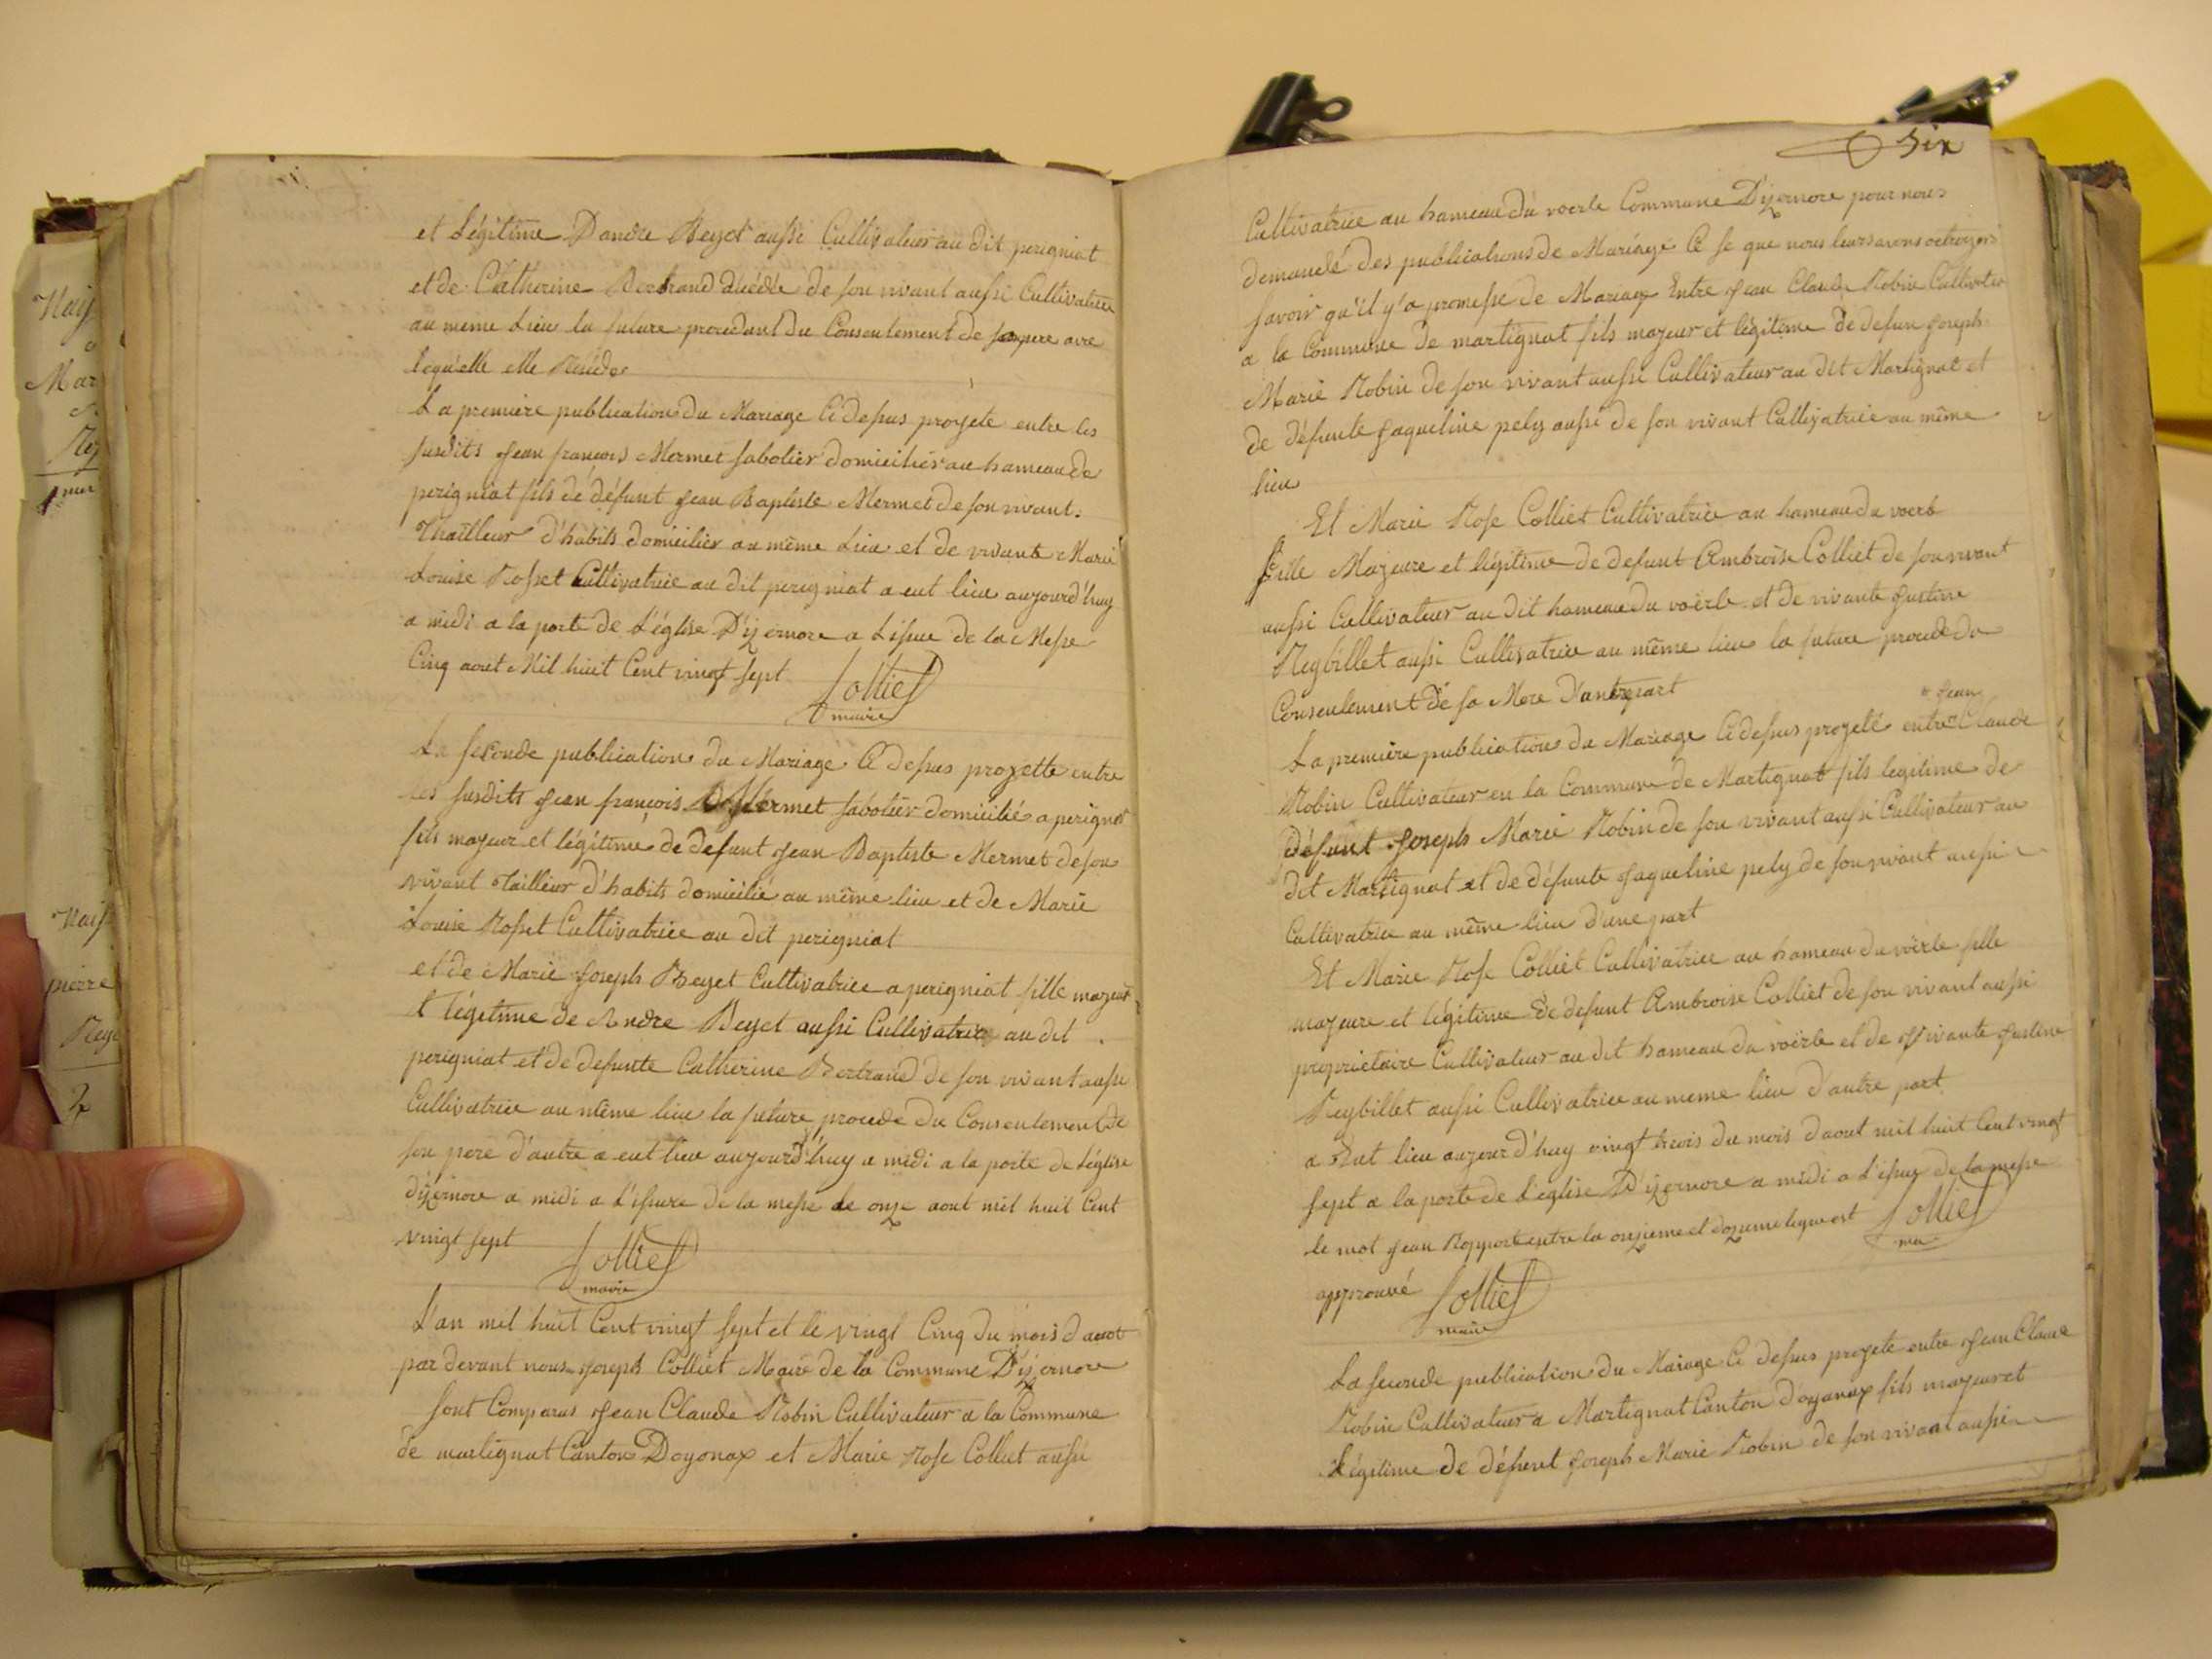 et Légitime D'andre Beyet aussi Cultivateur au dit perigniat
et de Catherine Bertrand décédé de son vivant aussi Cultivatrice
au meme Lieu la future procedant du Consentement de son pere avec
lequ'elle elle Réside
La premiere publication du Mariage Ci dessus projete entre les
susdits Jean françois Mermet sabotier domiciliés au hameau de
perigniat fils de défunt Jean Baptiste Mermet de son vivant
Thailleur d'habits domicilier au même Lieu et de vivante Marie
Louise Rosset Cultivatrice au dit perigniat a eut lieu aujourd'huy
a midi a la porte de L'église D'izernore a Lissue de la Messe
Cinq aout Mil huit Cent vingt sept
Colliet
maire
La seconde publication du Mariage Ci dessus projette entre
les susdits Jean françois Mermet sabotier domicilié a perigniat
fils majeur et légitime de defunt Jean Baptiste Mermet de son
vivant Tailleur d'habits domicilié au même lieu et de Marie
Louise Rosset Cultivatrice au dit perigniat
et de Marie Joseph Beyet Cultivatrice a perigniat fille majeur
et légitime de Andre Beyet aussi Cultivatrice au dit
perigniat et de defunte Catherine Bertrand de son vivant aussi
Cultivatrice au même lieu la future procede du Consentement de
son pere d'autre a eut lieu aujourd'huy a midi a la porte de Léglise
dizernore a midi a L'issuee de la messe le onze aout mil huit Cent
vingt sept
Colliet
maire
L'an mil huit Cent vingt sept et le vingt Cinq du mois d aout
par devant nous Joseph Colliet Maire de la Commune D'izernore
sont Comparus Jean Claude Robin Cultivateur a la Commune
de martignat Canton Doyonax et Marie Rose Colliet aussi
Six
Cultivatrice au hameau du voerle Commune D'izernore pour nous
demandé des publications de Mariage Ce se que nous leurs avons octroyers
savoir qu'il y'a promesse de Mariage Entre Jean Claude Robin Cultivateur
a la Commune de martignat fils majeur et légitime de defun Joseph
Marie Robin de son vivant aussi Cultivateur au dit Martignat et
de défunte Jaqueline pely aussi de son vivant Cultivatrice au même
lieu
Et Marie Rose Colliet Cultivatrice au hameau du voerle
fille Majeure et légitime de defunt Ambroise Colliet de son vivant
aussi Cultivateur au dit hameau du voërle et de vivante Justine
Reybillet aussi Cultivatrice au même lieu la future procede du
Consentement de sa Mere D'autre part
Jean
La premiere publication du Mariage Ci dessus projeté entre Claude
Robin Cultivateur en la Commune de Martignat fils legitime de
défunt Joseph Marie Robin de son vivant aussi Cultivateur au
dit Martignat et de défunte Jaqueline pely de son vivant aussi
Cultivatrice au même lieu d'une part
Et Marie Rose Colliet Cultivatrice au hameau du voërle fille
majeure et légitime de defunt Ambroise Colliet de son vivant aussi
proprietaire Cultivateur au dit hameau du voërle et de vivante Justine
Reybillet aussi Cultivatrice au meme lieu d'autre part
a Eut lieu aujourd'huy vingt trois du mois d'aout mil huit Cent vingt
sept a la porte de L'église D'izernore a midi a L'issue de la messe
le mot Jean Rapporté entre la onzieme et dozieme ligne est
Colliet
approuvé
Colliet
maire
La seconde publication du Mariage Ci dessus projete entre Jean Claude
Robin Cultivateur a Martignat Canton D'oyonax fils majeur et
Légitime de défunt Joseph Marie Robin de son vivant aussi